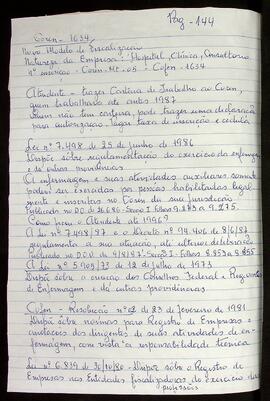 Pág - 144
Coren - 1634
Novo Modelo de Fiscalização
Natureza da Empresa: Hospital, Clínica, Consultório
Nº inscrição - Coren-Mt-05 - Cofen - 1634
Atendente - trazer Carteira de Trabalho ao Coren,
quem trabalhava até antes 1987
Quem não tem carteira, pode trazer uma declaração
para autorização. Pagar taxa de inscrição e cédula
Lei nº 7.498 de 25 de junho de 1986
Dispõe sôbre regulamentação do exercício da enfermagem
e dá outras providências
A enfermagem e suas atividades auxiliares somente
podem ser exercidas por pessoas habilitadas legal-
mente e inscritas no Coren da sua Jurisdição
Publicada no D.O.U de 26.6.86 - Secção I. Folhas 9.273 a 9.275.
Como inscr. o Atendente de 1986?
A Lei nº 7.498/87 e o Decreto nº 94.406 de 8/6/87
regulamenta a sua atuação, até ulterior deliberação
Publicado no D.O.U de 9/6/87 - Secção I - Folhas 8.853 a 8.855
A Lei nº 5.905/73 de 12 de julho de 1973
Dispõe sôbre a criação dos Conselhos Federal e Regionais
de Enfermagem e dá outras providências
Cofen - Resolução nº 62 de 23 de fevereiro de 1981
Dispõe sobre normas para Registro de Empresas e
anotações dos dirigentes de suas atividades de en-
fermagem, com vista a responsabilidade técnica
Lei nº 6.839 de 30/10/80 - Dispõe sôbre o Registro de
Empresas nas Entidades fiscalizadoras do exercício das
profissões